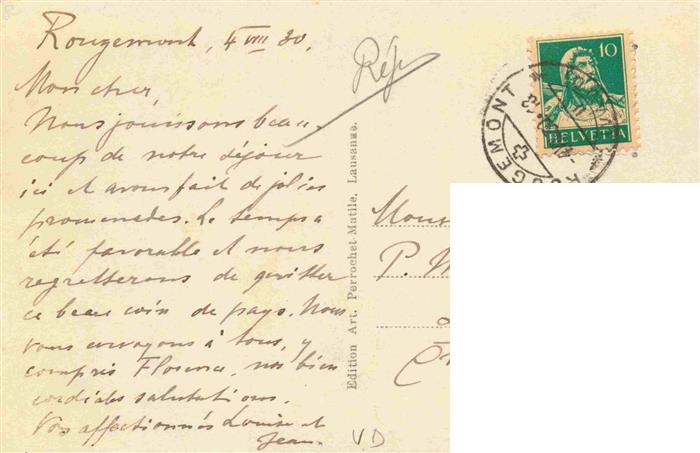 Rougemont, 4 VIII 30.
Mon cher,
Nous jouissons beau-
coup de notre séjour
ici et avons fait de jolies
promenades. Le temps a
été favorable et nous
regretterons de quitter
ce beau coin de pays. Nous
vous envoyons à tous, y
compris Florence, nos bien
cordiales salutations.
Vos affectionnés Louise et
Jean.
Rép
Edition Art. Perrochet-Matile, Lausanne.
10
HELVETIA
ROUGEMONT
P.
VD